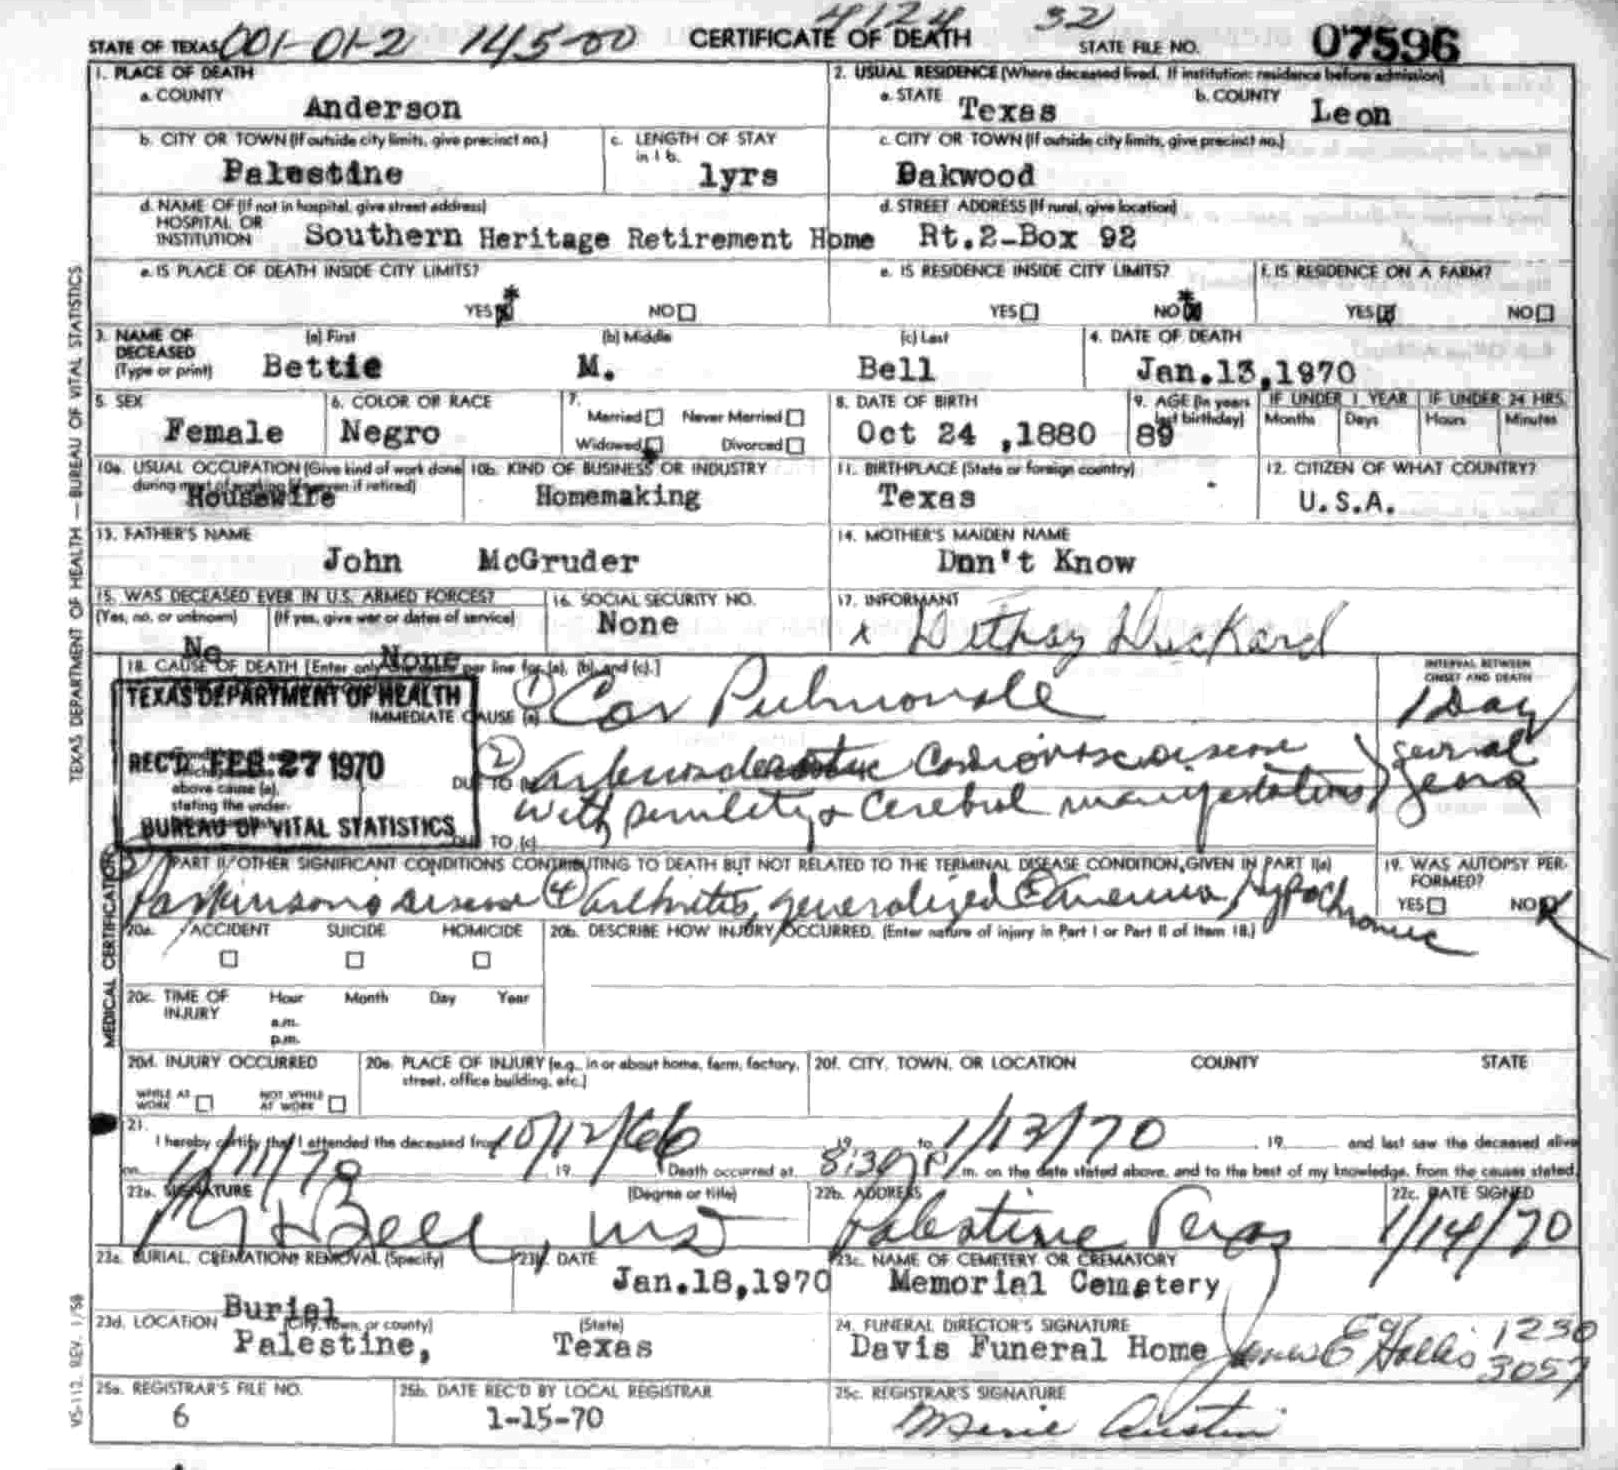 4124 32
STATE OF TEXAS 001-01-2 145-00 CERTIFICATE OF DEATH STATE FILE NO. 07596
1. PLACE OF DEATH 2. USUAL RESIDENCE (Where deceased lived. If institution: residence before admission)
a. COUNTY Anderson a. STATE Texas b. COUNTY Leon
b. CITY OR TOWN (If outside city limits, give precinct no.) c. LENGTH OF STAY in 1 b. c. CITY OR TOWN (If outside city limits, give precinct no.)
Palestine 1yrs Oakwood
d. NAME OF (If not in hospital, give street address) d. STREET ADDRESS (If rural, give location)
HOSPITAL OR
INSTITUTION Southern Heritage Retirement Home Rt.2-Box 92
e. IS PLACE OF DEATH INSIDE CITY LIMITS? e. IS RESIDENCE INSIDE CITY LIMITS? f. IS RESIDENCE ON A FARM?
YES NO YES NO YES NO
3. NAME OF DECEASED (a) First (b) Middle (c) Last 4. DATE OF DEATH
(Type or print) Bettie M. Bell Jan.13,1970
5. SEX 6. COLOR OR RACE 7. 8. DATE OF BIRTH 9. AGE (In years last birthday) IF UNDER 1 YEAR IF UNDER 24 HRS.
Married Never Married Months Days Hours Minutes
Female Negro Oct 24 ,1880 89
Widowed Divorced
10a. USUAL OCCUPATION (Give kind of work done 10b. KIND OF BUSINESS OR INDUSTRY 11. BIRTHPLACE (State or foreign country) 12. CITIZEN OF WHAT COUNTRY?
during most of working life, even if retired)
Housewife Homemaking Texas U.S.A.
13. FATHER'S NAME 14. MOTHER'S MAIDEN NAME
John McGruder Dnn't Know
15. WAS DECEASED EVER IN U.S. ARMED FORCES? 16. SOCIAL SECURITY NO. 17. INFORMANT
(Yes, no, or unknown) (If yes, give war or dates of service) None x
No None
18. CAUSE OF DEATH [Enter only one cause per line for (a), (b), and (c).] INTERVAL BETWEEN ONSET AND DEATH
TEXAS DEPARTMENT OF HEALTH
IMMEDIATE CAUSE (a) (1) Cor Pulmonale 1 Day
REC'D FEB 27 1970
DUE TO (b) (2) Arteriosclerotic Cardiovasc disease several
above cause (a), stating the under-
with senility & Cerebral manifestations years
BUREAU OF VITAL STATISTICS DUE TO (c)
PART II. OTHER SIGNIFICANT CONDITIONS CONTRIBUTING TO DEATH BUT NOT RELATED TO THE TERMINAL DISEASE CONDITION GIVEN IN PART I(a) 19. WAS AUTOPSY PERFORMED?
(3) Parkinson's disease (4) Arthritis, generalized (5) Anemia, Hypochromic YES NO
20a. ACCIDENT SUICIDE HOMICIDE 20b. DESCRIBE HOW INJURY OCCURRED. (Enter nature of injury in Part I or Part II of Item 18.)
20c. TIME OF INJURY Hour Month Day Year
a.m.
p.m.
20d. INJURY OCCURRED 20e. PLACE OF INJURY (e.g., in or about home, farm, factory, street, office building, etc.) 20f. CITY, TOWN, OR LOCATION COUNTY STATE
WHILE AT WORK NOT WHILE AT WORK
21.
I hereby certify that I attended the deceased from 10/12/66 19 to 1/13/70 , 19 and last saw the deceased alive
on 1/11/70 , 19 . Death occurred at 8:30 P m. on the date stated above, and to the best of my knowledge, from the causes stated.
22a. SIGNATURE (Degree or title) 22b. ADDRESS 22c. DATE SIGNED
Bell, MD Palestine Texas 1/14/70
23a. BURIAL, CREMATION, REMOVAL (Specify) 23b. DATE 23c. NAME OF CEMETERY OR CREMATORY
Burial Jan.18,1970 Memorial Cemetery
23d. LOCATION (City, town, or county) (State) 24. FUNERAL DIRECTOR'S SIGNATURE
Palestine, Texas Davis Funeral Home James E Hollis 1230
3057
25a. REGISTRAR'S FILE NO. 25b. DATE REC'D BY LOCAL REGISTRAR 25c. REGISTRAR'S SIGNATURE
6 1-15-70 Austin
TEXAS DEPARTMENT OF HEALTH — BUREAU OF VITAL STATISTICS
MEDICAL CERTIFICATION
VS-112 REV. 1/58